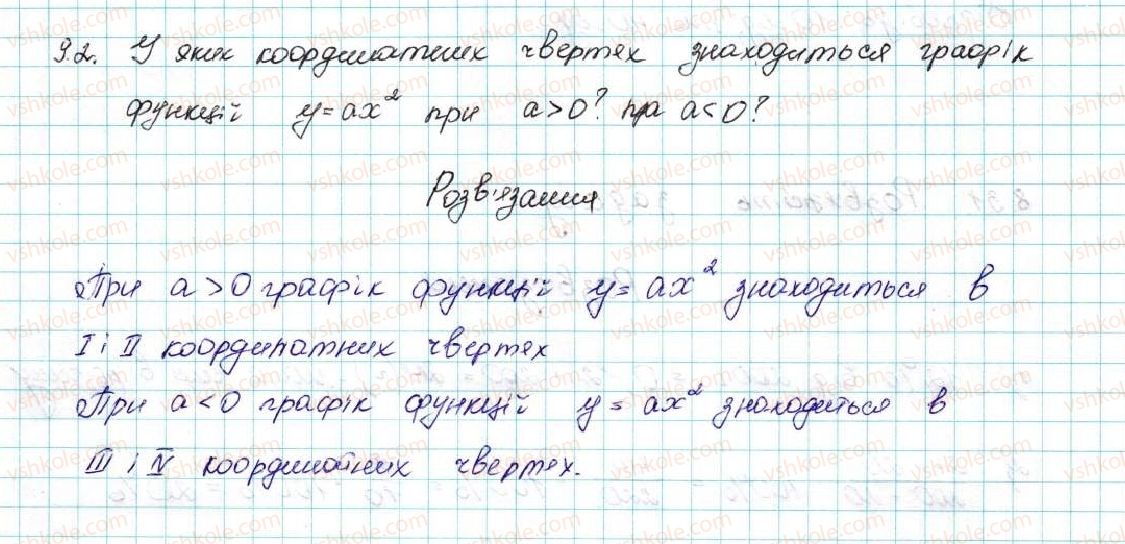 9.2. У яких координатних чвертях знаходиться графік
функцій y=ax² при a>0? при a<0?
Розв'язання
При a>0 графік функцій y=ax² знаходиться в
I і II координатних чвертях
При a<0 графік функцій y=ax² знаходиться в
III і IV координатних чвертях.